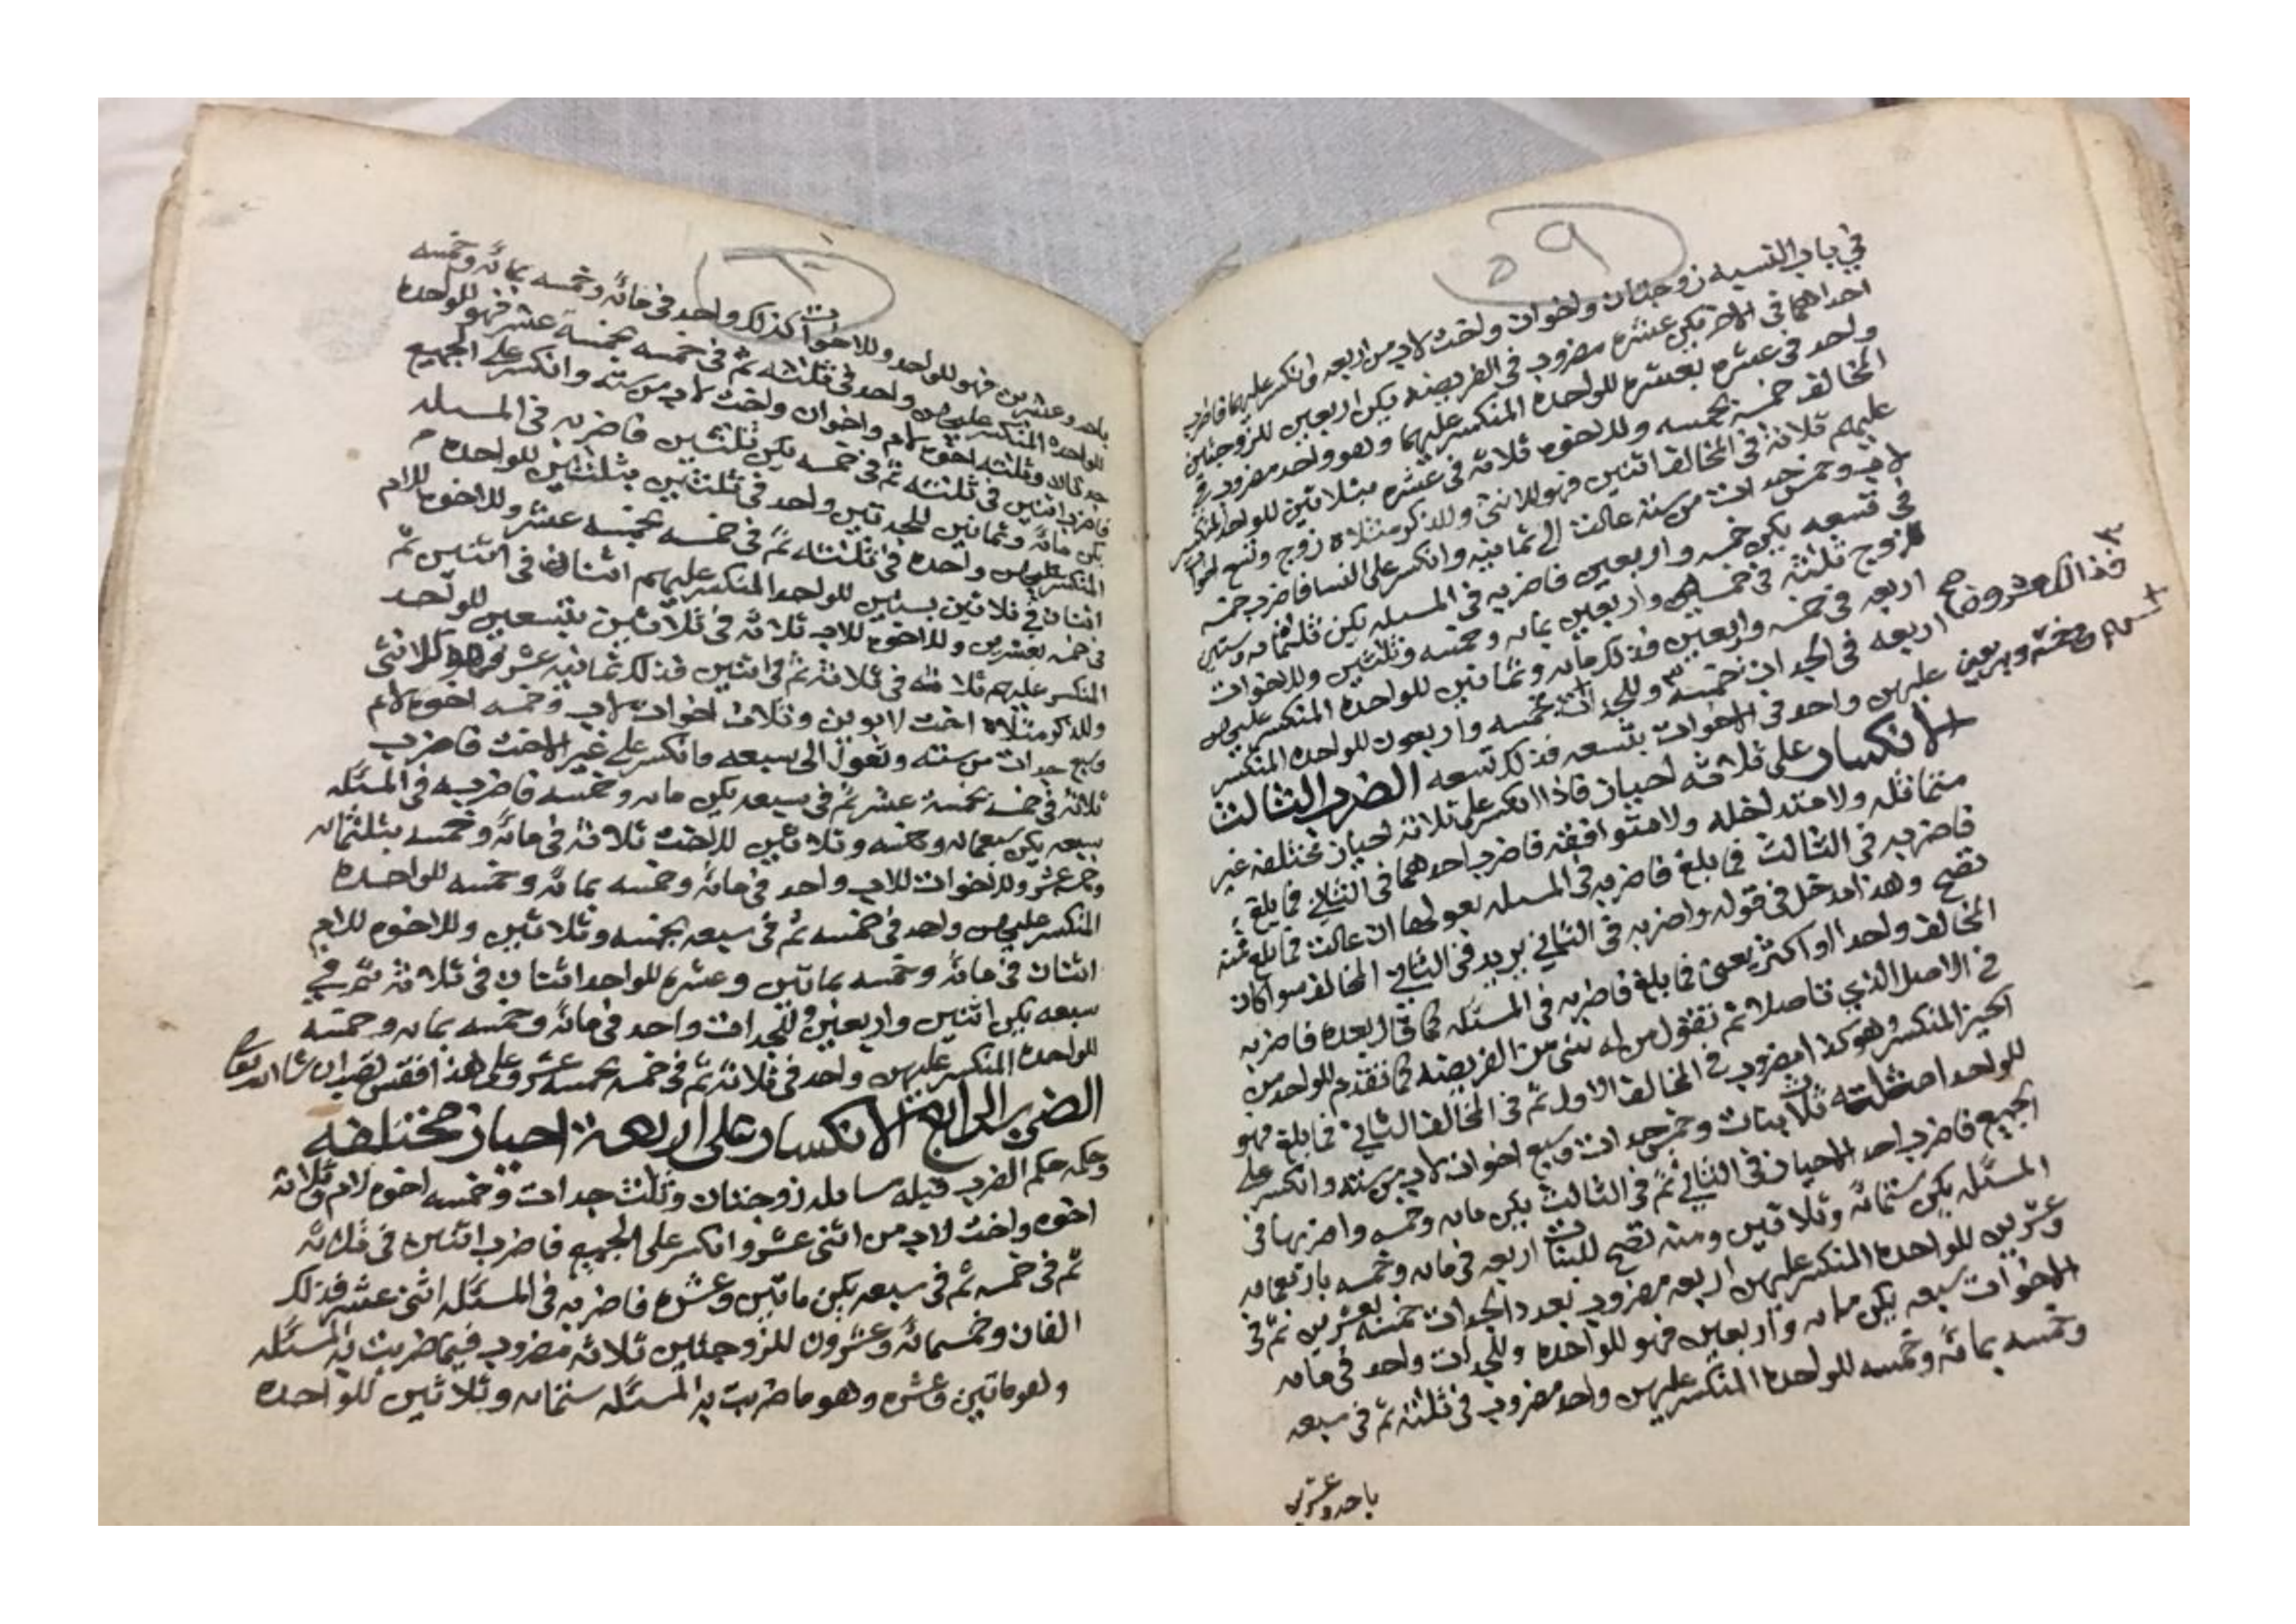 ٥٩
في باب التسميه زوجتان واخوان واخت لاب من اربعه وانكسر عليهما فاضرب
احداهما فى الاخر يكن عشره مضروب فى الفريضه يكن اربعين للزوجتين
واحد فى عشره بعشره للواحده المنكسر عليهما وهو واحد مضروب في
المخالف خمسة بخمسه وللاخوه ثلاثه فى عشره بثلاثين للواحد المنكسر
عليهم ثلاثة فى المخالف اثنين فهو للانثى وللذكر مثلاه زوج وتسع اخوات
لاب وخمس جدات من سته عالت الى ثمانيه وانكسر على النسا فاضرب خمسه
فى تسعه يكن خمسه واربعين فاضربه فى المسىله يكن ثلثمائه وستين
للزوج ثلثة فى خمسه واربعين بمايه وخمسه وثلثين وللاخوات
اربعه فى خمسه واربعين فذلك مايه وثمانين للواحده المنكسر عليهن
اربعه فى الجدات خمسه وللجدات بخمسه واربعون للواحده المنكسر
فذالك عشرون صح
عليهن واحد فى الاخوات بتسعه فذلك تسعه الضرب الثالث
الانكسار على ثلاثه احياز فاذا انكسر على ثلاثة احياز مختلفه غير
متماثله ولا متداخله ولا متوافقه فاضرب احدهما فى الثاني فما بلغ
فاضربه فى الثالث فما بلغ فاضربه فى المسىله بعولها ان عالت فما بلغ منه
تصح وهذا مدخل فى قوله واضربه فى الثاني يريد فى الثاني المخالف سوا كان
المخالف واحدا او اكثر يعنى فما بلغ فاضربه فى المسئله كما قال بعده فاضربه
فى الاصل الذي تاصلا ثم تقول من له شى من الفريضه كما تقدم للواحد من
الحيز المنكسر وهو كذا مضروب في المخالف الاول ثم فى المخالف الثاني فما بلغ فهو
للواحد امثلته ثلاث بنات وخمس جدات وسبع اخوات لاب من سته وانكسر على
الجميع فاضرب احد الاحياز فى الثاني ثم فى الثالث يكن مايه وخمسه واضربها فى
المسئله يكن ستمائه وثلاثين ومنه تصح للبنات اربعه فى مايه وخمسه باربعمايه
وعشرين للواحده المنكسر عليهن اربعه مضروب بعدد الجدات خمسة بعشرين ثم فى
الاخوات سبعه يكن مايه واربعين فهو للواحده وللجدات واحد فى مايه
وخمسه بمائه وخمسه للواحده المنكسر عليهن واحد مضروب فى ثلثه ثم فى سبعه
باحد وعشرين
باحد وعشرين فهو للواحد وللاخوات كذلك واحد فى مائه وخمسه بمائه وخمسه
للواحده المنكسر عليهن واحد فى ثلثه ثم فى خمسه بخمسة عشر فهو للواحده
وثلثه اخوه لام واخوان واخت لاب من سته وانكسر على الجميع
فاضرب اثنين فى ثلثه ثم فى خمسه يكن ثلثين فاضربه فى المسىله
يكن مائه وثمانين للجدتين واحد فى ثلثين بثلثين للواحده
المنكسر عليهن واحده فى ثلثه ثم فى خمسه بخمسه عشر وللاخوه للام
اثنان في ثلاثين بستين للواحد المنكسر عليهم اثنان فى اثنين ثم
فى خمسه بعشرين وللاخوه للاب ثلاثه فى ثلاثين بتسعين للواحد
المنكسر عليهم ثلاثه فى ثلاثة ثم فى اثنين فذلك ثمانيه عشر فهو للانثى
وللذكر مثلاه اخت لابوين وثلاث اخوات لاب وخمسه اخوه لام
وسبع جدات من سته وتعول الى سبعه وانكسر على غير الاخت فاضرب
ثلاثة فى خمسه بخمسة عشر ثم فى سبعه يكن مايه وخمسه فاضربه فى المسئله
سبعه يكن سبعمايه وخمسه وثلاثين للاخت ثلاثة فى مائه وخمسه بثلثمائه
وخمسة عشر وللاخوات للاب واحد فى مائه وخمسه بمائه وخمسه للواحده
المنكسر عليهن واحد فى خمسه ثم فى سبعه بخمسه وثلاثين وللاخوه للام
اثنان فى مائه وخمسه بماتين وعشره للواحد اثنان فى ثلاثة ثم في
سبعه يكن اثنين واربعين وللجدات واحد فى مائه وخمسه بمايه وخمسه
للواحده المنكسر عليهن واحد فى ثلاثة ثم فى خمسه بخمسه عشر وعلى هذا فقس تصب ان شا الله تعالى
الضرب الرابع الانكسار على اربعة احياز مختلفه
وحكمه حكم الضرب قبله زوجتان وثلث جدات وخمسه اخوه لام وثلاثة
اخوه واخت لاب من اثنى عشر وانكسر على الجميع فاضرب اثنين فى ثلاثه
ثم فى خمسه ثم فى سبعه يكن ماتين وعشره فاضربه فى المسئله اثنى عشر فذلك
الفان وخمسمائه وعشرون للزوجتين ثلاثه مضروب فيما ضربت به المسئله
وهو ماتين وعشره وهو ما ضربت به المسئله ستمايه وثلاثين للواحده